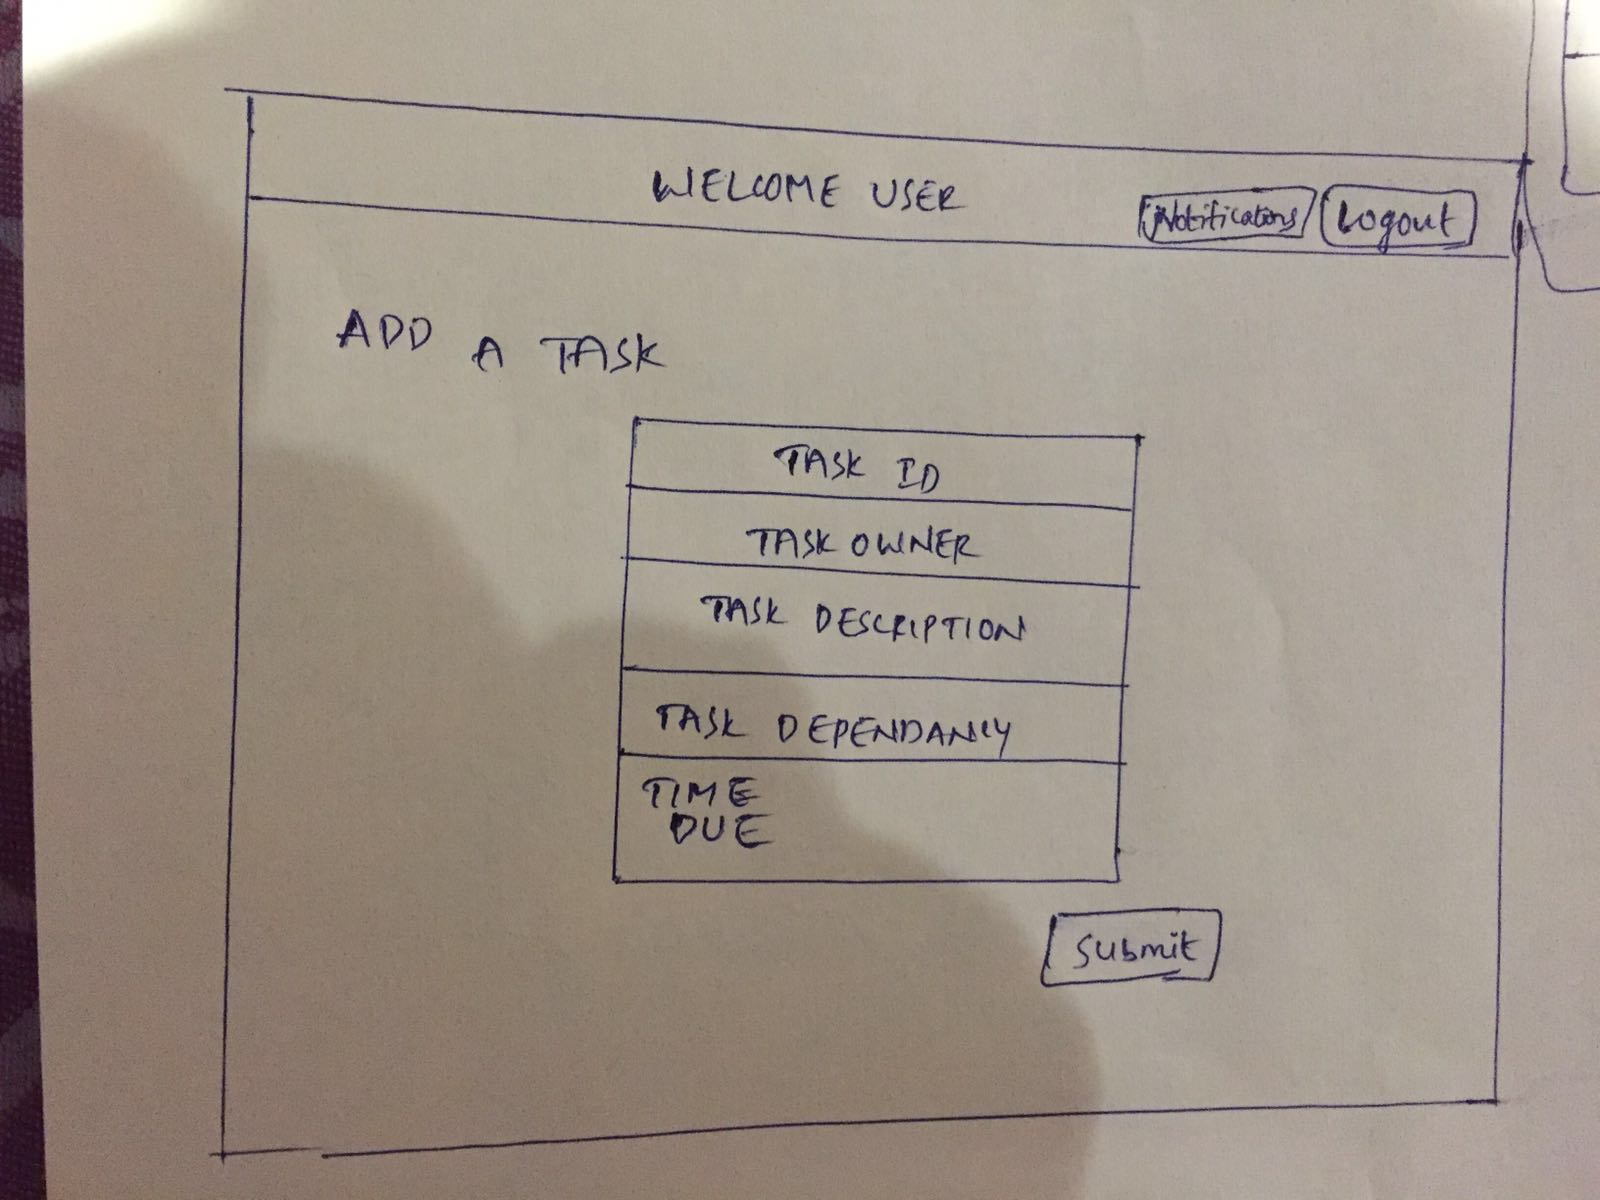 WELCOME USER
Notifications
Logout
ADD A TASK
TASK ID
TASK OWNER
TASK DESCRIPTION
TASK DEPENDANCY
TIME
DUE
Submit